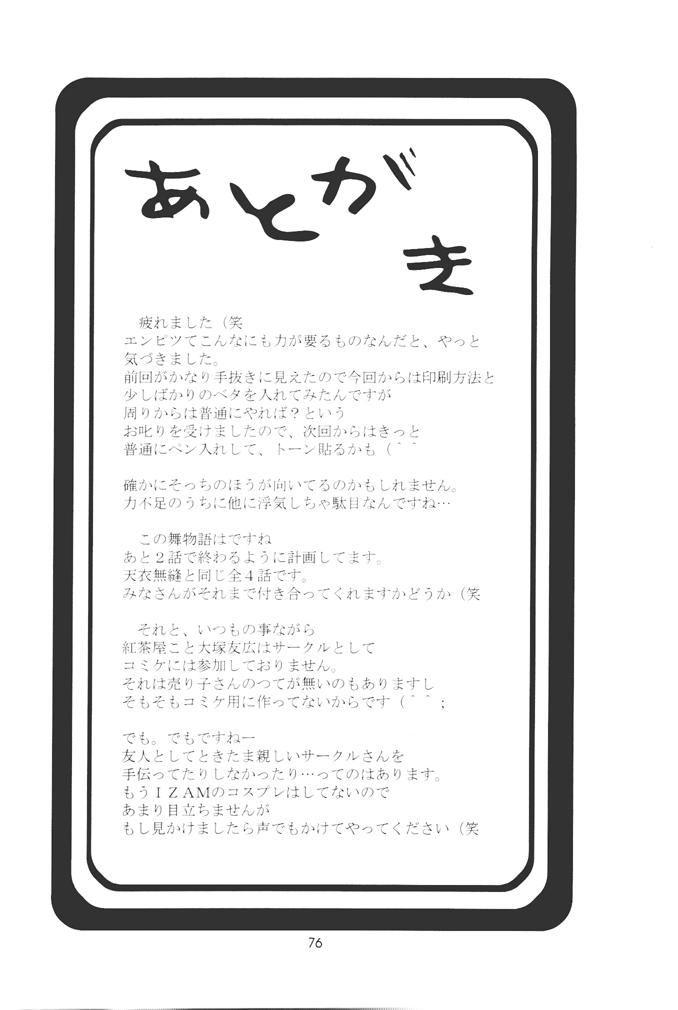 あとがき
疲れました（笑
エンピツてこんなにも力が要るものなんだと、やっと
気づきました。
前回がかなり手抜きに見えたので今回からは印刷方法と
少しばかりのベタを入れてみたんですが
周りからは普通にやれば？という
お叱りを受けましたので、次回からはきっと
普通にペン入れして、トーン貼るかも（＾＾
確かにそっちのほうが向いてるのかもしれません。
力不足のうちに他に浮気しちゃ駄目なんですね…
この舞物語はですね
あと２話で終わるように計画してます。
天衣無縫と同じ全４話です。
みなさんがそれまで付き合ってくれますかどうか（笑
それと、いつもの事ながら
紅茶屋こと大塚友広はサークルとして
コミケには参加しておりません。
それは売り子さんのつてが無いのもありますし
そもそもコミケ用に作ってないからです（＾＾；
でも。でもですねー
友人としてときたま親しいサークルさんを
手伝ってたりしなかったり…ってのはあります。
もうＩＺＡＭのコスプレはしてないので
あまり目立ちませんが
もし見かけましたら声でもかけてやってください（笑
76